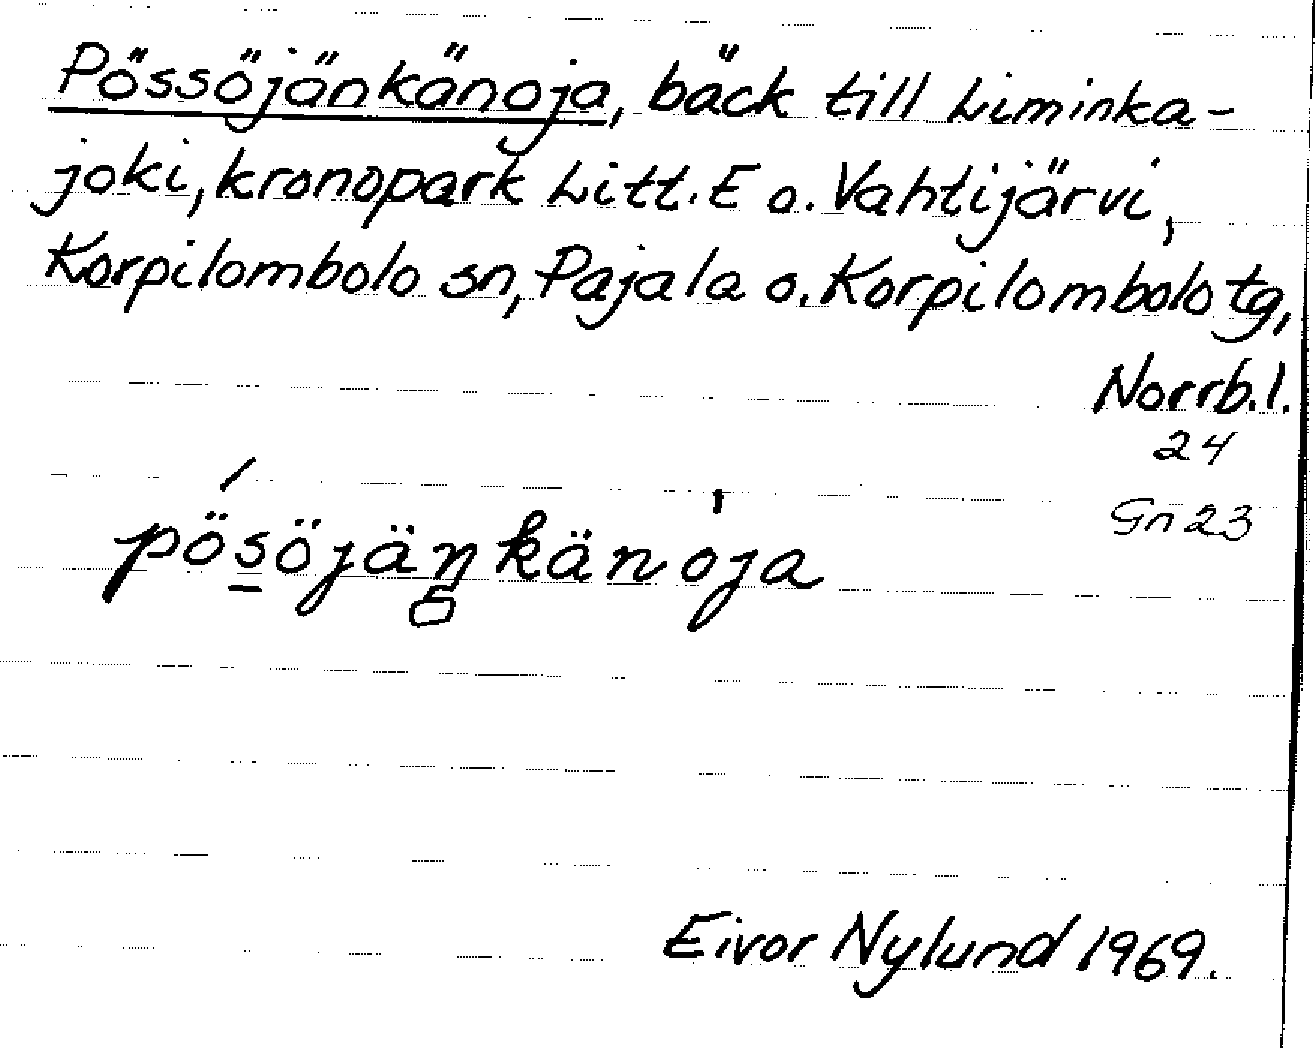 Pössöjänkänoja, bäck till Liminka-
joki, kronopark Litt. E o. Vahtijärvi,
Korpilombolo sn, Pajala o. Korpilombolo tg,
Norrb.l.
24
Gn 23
pö́s̲öjäŋkäno̍ja
Eivor Nylund 1969.